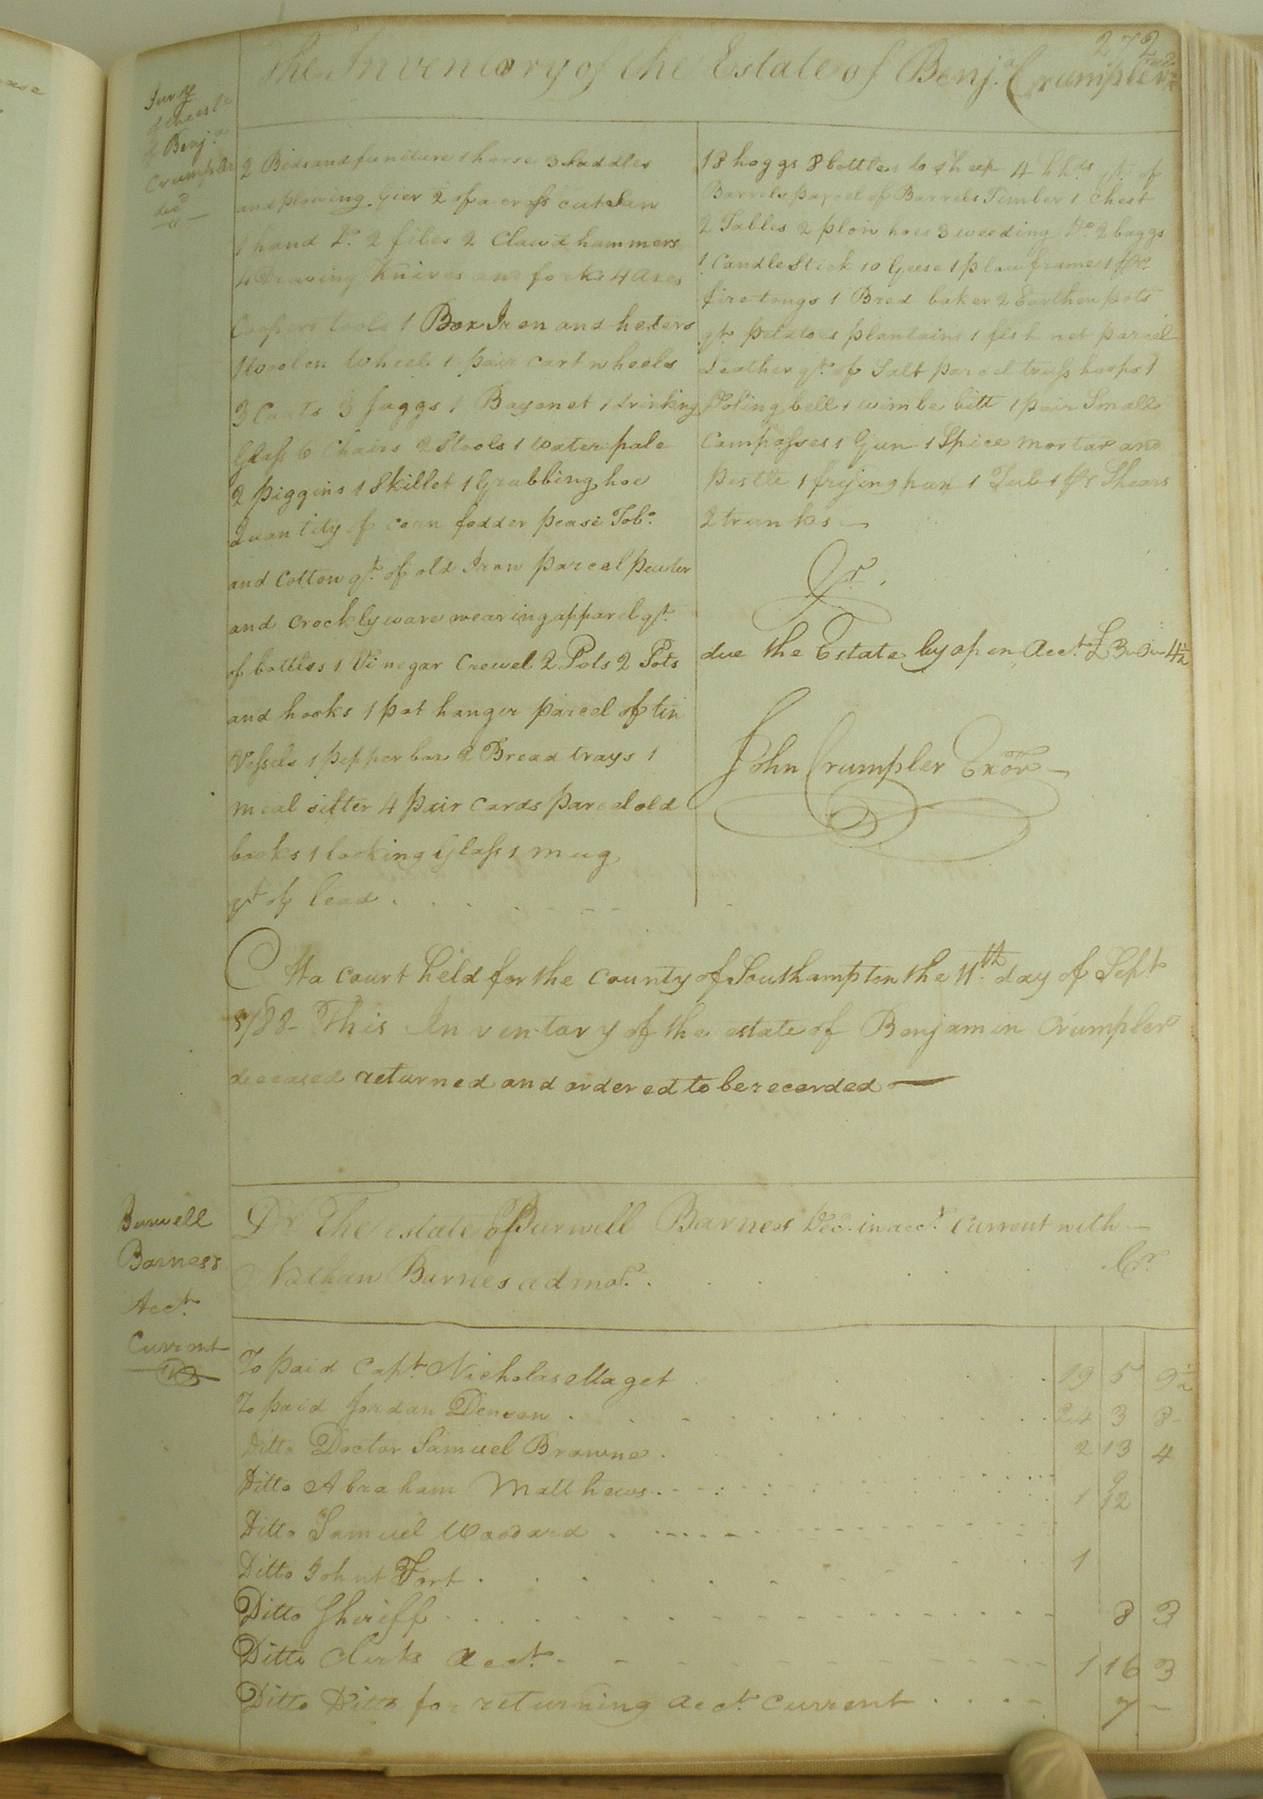 272
The Inventory of the Estate of Benj.a Crumpler
Benj.a
Crumpler
dec.d
2 Beds and funiture 1 horse 3 Saddles
and plowing Gier 2 of a cross cut saw
1 hand Do. 2 files 2 Clawd hammers
4 Drawing Knives and forks 4 axes
Coopers tools 1 Box Iron and heters
1 Woolen Wheel 1 pair cart wheels
3 Carts 3 Juggs 1 Bayonet 1 drinking
Glass 6 Chairs 2 Stools 1 Water pale
2 piggins 1 Skillet 1 Grubbing hoe
Quantity of corn fodder pease Tobo.
and Cotton qt. of old Iron parcel pewter
and crockly ware wearing apparel qt.
of bottles 1 Vinegar Crewel 2 Pots 2 Pots
and hooks 1 pot hanger parcel of tin
Vessels 1 pepper box 2 Bread trays 1
meal sifter 4 pair cards parcel old
books 1 looking Glass 1 mug
qt. of lead
18 hoggs 8 bottles 10 sheep 4 hhds. qt. of
Barrels parcel of Barrels Timber 1 chest
2 Tables 2 plow hoes 3 weeding Do 2 baggs
1 Candle Stick 10 Geese 1 plow frame 1 pr.
fire tongs 1 Bred baker 2 Earthen pots
qt. potatoes plantains 1 fish net parcel
Leather qt. of Salt parcel truss hoops 1
bell 1 wimbe bitt 1 pair Small
Compasses 1 Gun 1 Spice mortar and
pestle 1 frying pan 1 Tub 1 pr Shears
2 trunks
due the Estate by open Acct. £3-0-4½
John Crumpler Exor
At a court held for the county of Southampton the 11th day of Sept
1788- This Inventory of the estate of Benjamin Crumpler
deceased returned and ordered to be recorded
Burwell
Barness
Acct.
Current
Dr The estate of Burwell Barnes Dec.d in acct. Current with
Nathan Barnes admor. Cr
To paid Capt. Nicholas Maget 19 5 9½
To paid Jordan Denson 24 3 8
Ditto Doctor Samuel Browne 2 13 4
Ditto Abraham Matthews 9
Ditto Samuel Woodard 1 12
Ditto John Fort 1
Ditto Sheriff 8 3
Ditto Clerks acct. 1 16 3
Ditto Ditto for returning acct. current 7 -